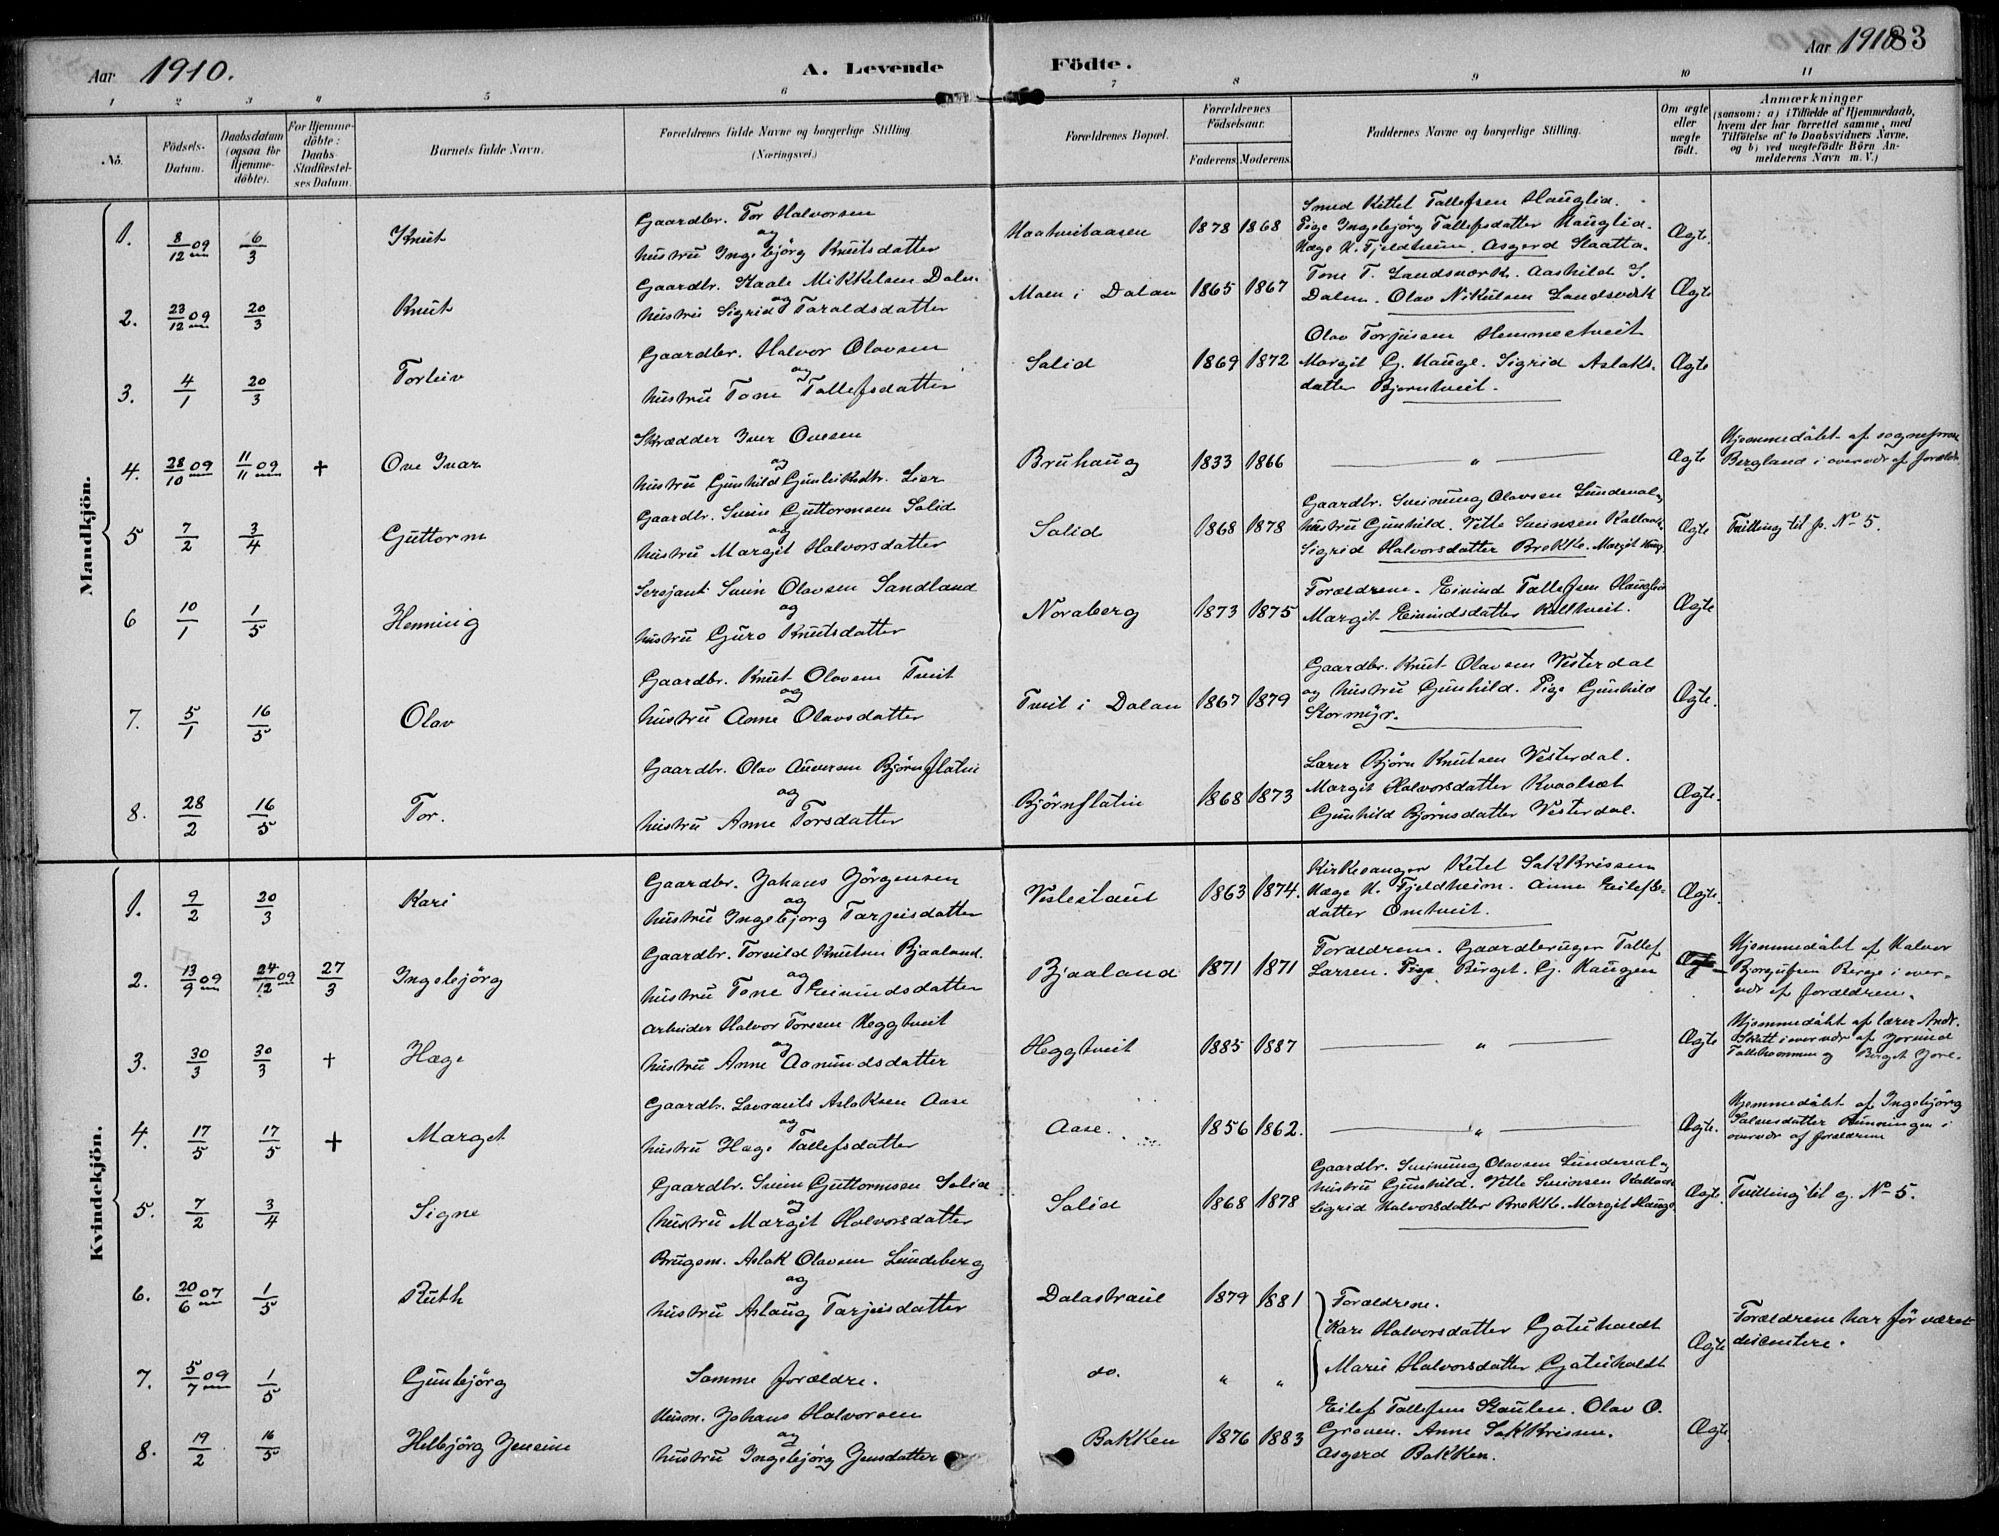 Aar 1910.
A. Levende Födte.
Aar 1910
83
1 2 3 4 5 6 7 8 9 10 11
No.
Födsels-Datum.
Daabsdatum (ogsaa for Hjemme-döbte).
For Hjemme-döbte: Daabs-Stadfæstel-ses Datum.
Barnets fulde Navn.
Forældrenes fulde Navne og borgerlige Stilling. (Næringsvei.)
Forældrenes Bopæl.
Forældrenes Födselsaar.
Faderens. Moderens.
Faddernes Navne og borgerlige Stilling.
Om ægte eller uægte födt.
Anmærkninger
(saasom: a) i Tilfælde af Hjemmedaab, hvem der har forrettet samme, med Tilföielse af to Daabsvidners Navne. og b) ved uægtefödte Börn An-melderens Navn m. V.)
Mandkjön.
1. 8/12 09 6/3 Knut
Gaardbr. Tor Halvorsen
og
hustru Ingebjörg Knutsdatter
1878 1868
Smed Kittel Tallefsen Hauglid.
Pige Ingebjörg Tallefsdatter Hauglid.
Hæge K. Fjeldheim. Asgerd Staatta.
Ægte.
2. 23/12 09 20/3 Knut
Gaardbr. Staale Mikkelsen Dalen
og
hustru Sigrid Taraldsdatter
Moen i Dalan 1865 1867
Tone T. Landsværk. Aashild S.
Dalen. Olav Nikulsen Landsverk
Ægte
3. 4/1 20/3 Torleiv
Gaardbr. Halvor Olavsen
og
hustru Tone Tallefsdatter
Solid 1869 1872
Olav Torjusen Hemmestveit
Margit G. Hauge. Sigrid Aslaks-
datter Bjorntveit.
Ægte
4. 28/10 09 11/11 09 + Ove Ivar
Skrædder Iver Ovesen
og
hustru Gunhild Gunleiksdtr. Lier
Bruhaug 1833 1866
— " —
Ægte
Hjemmedöbt af sognepræst
Bergland i overvdr af forældr.
5 7/2 3/4 Guttorm
Gaardbr. Svein Guttormsen Solid
og
hustru Margit Halvorsdatter
Solid 1868 1878
Gaardbr. Sveinung Olavsen Lundeval og
hustru Gunhild. Vetle Sveinsen
Sigrid Halvorsdatter Brekke. Margit Haug
Ægte Tvilling til p. No 5.
6 10/1 1/5 Henning
Sersjant Svein Olavsen Sandland
og
hustru Guro Knutsdatter
Noraberg 1873 1875
Forældrene. Eivind Tallefsen Hauglid
Margit Eivindsdatter Kaltveit.
Ægte
7. 5/1 16/5 Olav
Gaardbr. Knut Olavsen Tveit
og
hustru Anne Olavsdatter
Tveit i Dalan 1867 1879
Gaardbr. Knut Olavsen Vesterdal
og hustru Gunhild. Pige Gunhild
Stormyr.
Ægte.
8. 28/2 16/5 Tor.
Gaardbr. Olav Auversen Björnflatin
og
hustru Anne Torsdatter
Björnflatin 1868 1873
Lærer Björn Knutsen Vesterdal.
Margit Halvorsdatter Kvaalsæt
Gunhild Björnsdatter Vesterdal.
Ægte.
Kvindekjön.
1. 9/2 20/3 Kari
Gaardbr. Johans Jörgensen
og
hustru Ingebjorg Tarjeisdatter
Veslestaul 1863 1874.
Kirkesanger Ketel Sakkrissen
Hæge K. Fjeldheim. Anne Eilefs-
datter Omtveit.
Ægte.
2. 13/9 09 24/12 09 27/3 Ingebjörg
Gaardbr. Torvild Knutsen Bjaaland.
og
hustru Tone Eivindsdatter
Bjaaland 1871 1871
Forældrene. Gaardbruger Tallef
Larsen. Pige Birget. G. Haugen
Ægte
Hjemmedöbt af Halvor
Borgufsen Berge i over-
vdr af forældrene.
3. 30/3 30/3 + Hæge
Arbeider Halvor Toresen Heggtveit
og
hustru Anne Aamundsdatter
Heggtveit 1885 1887
— " —
Ægte
Hjemmedöbt af lærer Andr.
Skatt i overvdr af Jorund
og Birget Jore.
4. 17/5 17/5 + Marget
Gaardbr. Lavrants Aslaksen Aase
og
hustru Hæge Tallefsdatter
Aase. 1856 1862.
— " —
Ægte.
Hjemmedöbt af Ingebjörg
Salvesdatter Runningen i
overvdr af forældrene
5. 7/2 3/4 Signe
Gaardbr. Svein Guttormssen Solid
og
hustru Margit Halvorsdatter
Solid 1868 1878
Gaardbr. Sveinung Olavsen Lundeval og
hustru Gunhild. Vetle Sveinsen
Sigrid Halvorsdatter Brekke. Margit Hauge.
Ægte. Tvilling til g. No 5.
6. 20/6 07 1/5 Ruth
Brugsm. Aslak Olavsen Lundeberg
og
hustru Aslaug Tarjeisdatter
Dalastraul 1879 1881
Forældrene.
Kari Halvorsdatter Gotuholdt
Marie Halvorsdatter Gotuholdt
Ægte
Forældrene har för været
disentere.
7. 5/7 09 1/5 Gunbjörg
Samme forældre.
do. " "
8. 19/2 16/5 Helbjörg Jensine
Husm. Johans Halvorsen
og
hustru Ingebjörg Jensdatter
Bakken 1876 1883
Eilef Tallefsen Staulen. Olav O.
Groven. Anne Sakkrisen.
Asgerd Bakken.
Ægte.